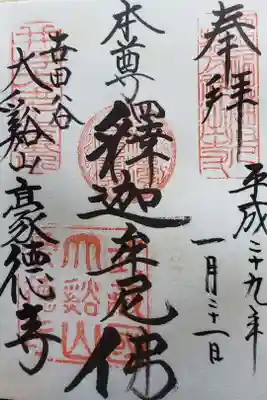 奉拝
平成二十九年
一月三十一日
本尊
釋迦牟尼佛
世田谷
大谿山豪德寺